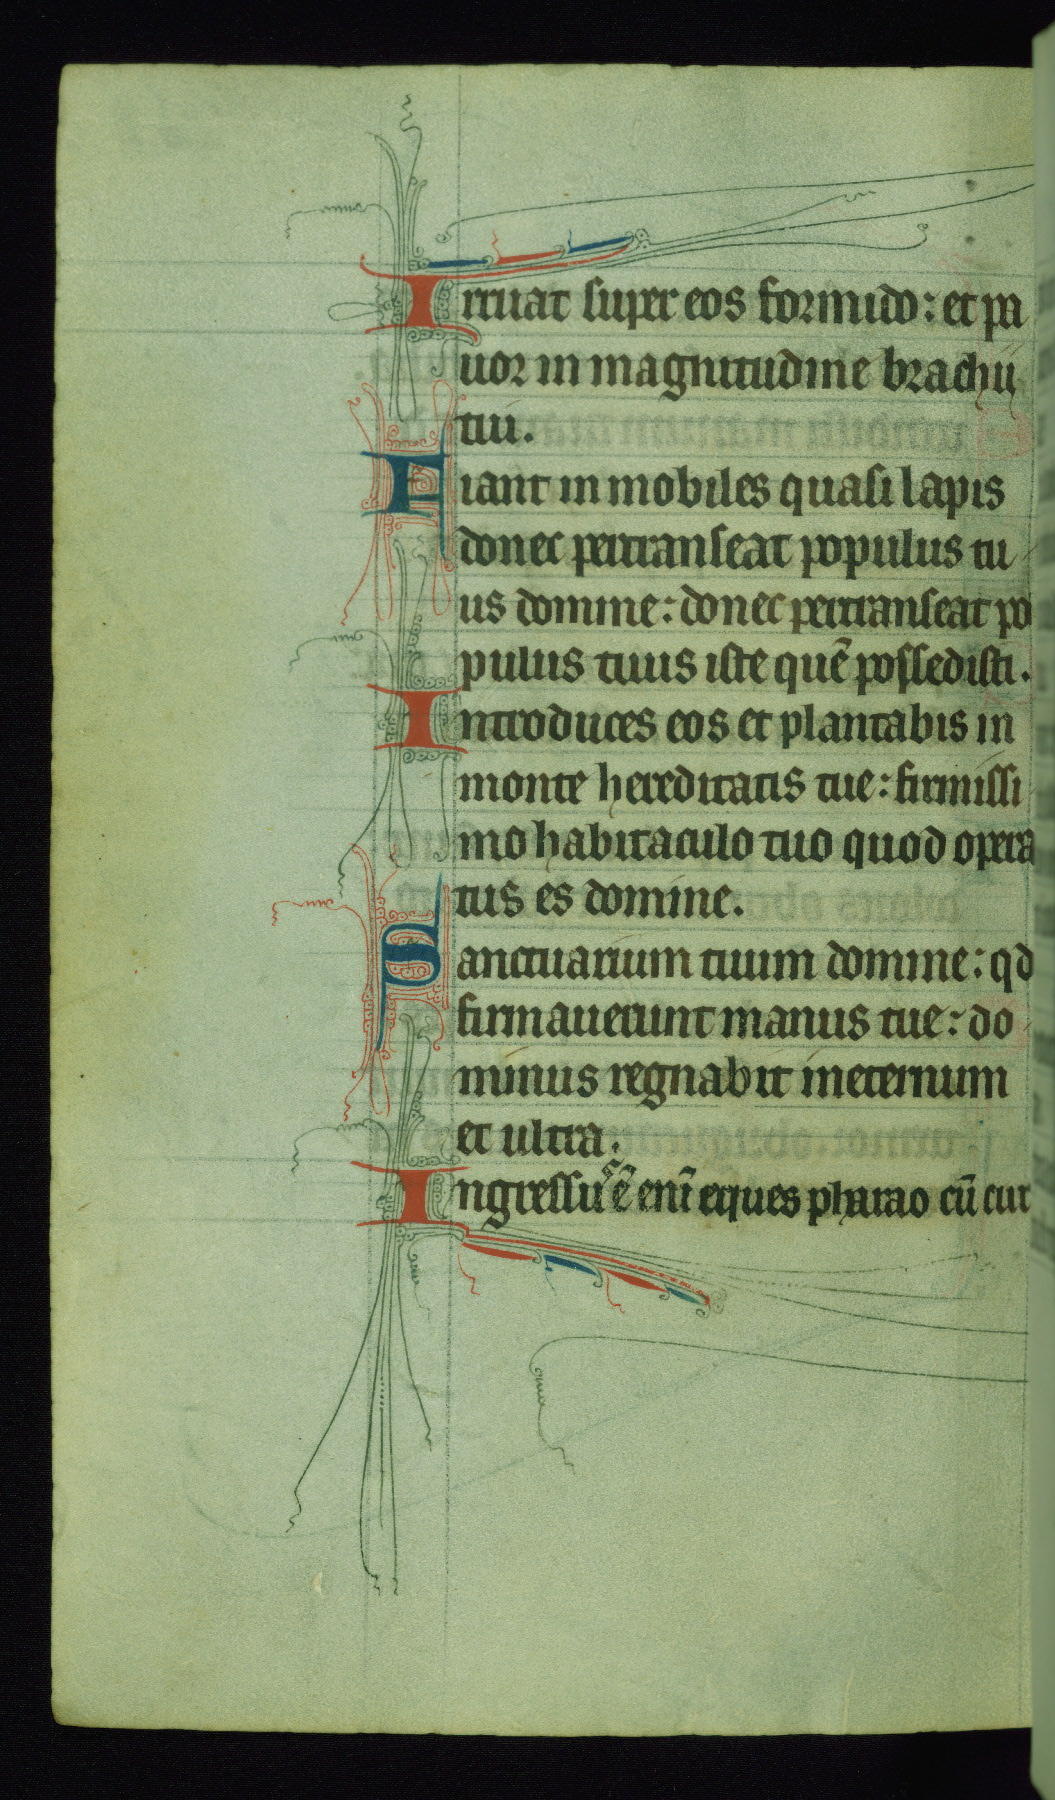 Irruat super eos formido: et pa
uor in magnitudine brachij
tui.
Fiant inmobiles quasi lapis
donec pertranseat populus tu
us domine: donec pertranseat po
pulus tuus iste quē possedisti.
Introduces eos et plantabis in
monte hereditatis tue: firmissi
mo habitaculo tuo quod opera
tus es domine.
Sanctuarium tuum domine: qd
firmauerunt manus tue: do
minus regnabit ineternum
et ultra.
Ingressuˢ ē enī eques pharao cū cur